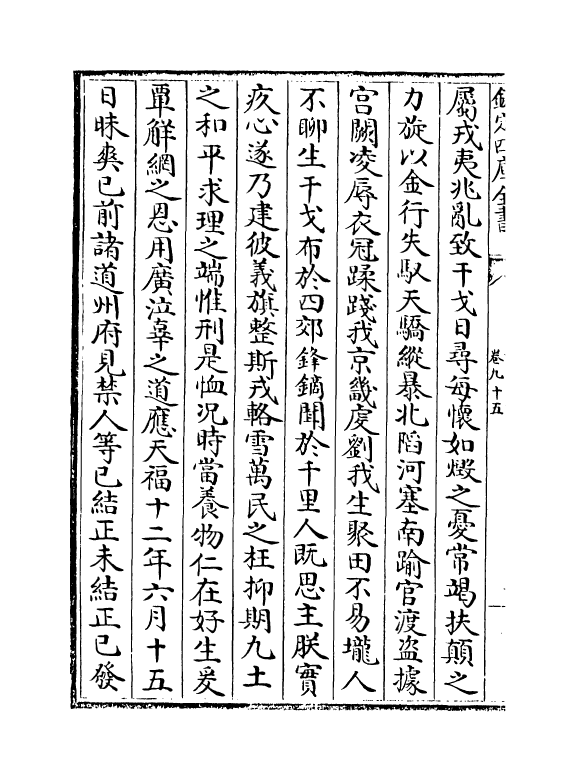 欽定四庫全書
卷九十五
屬戎夷兆亂致干戈日尋每懷如燬之憂常竭扶顛之
力旋以金行失馭天驕縱暴北陷河塞南踰官渡盜據
宫闕凌辱衣冠蹂踐我京畿虔劉我生聚田不易壠人
不聊生干戈布於四郊鋒鏑聞於千里人既思主朕實
疚心遂乃建彼義旗整斯戎輅雪萬民之枉抑期九土
之和平求理之端惟刑是恤况時當養物仁在好生爰
覃解網之恩用廣泣辜之道應天福十二年六月十五
日昧爽已前諸道州府見禁人等已結正未結正已發